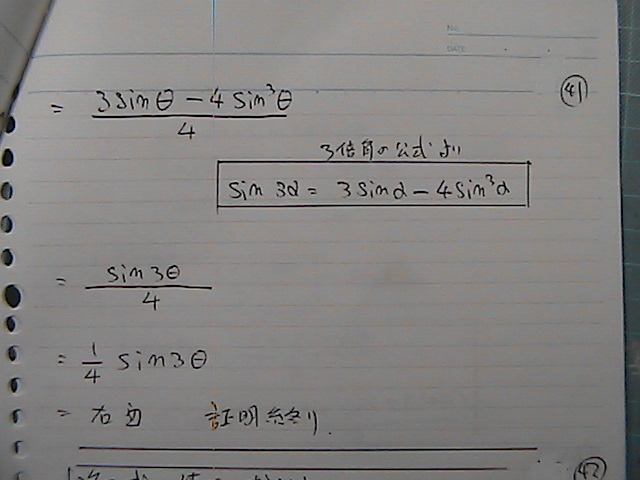 No.
DATE
㊶
= (3sinθ − 4sin³θ)/4
3倍角の公式より
sin 3α = 3sinα − 4sin³α
= sin3θ/4
= 1/4 sin3θ
= 右辺 証明終り.
㊷